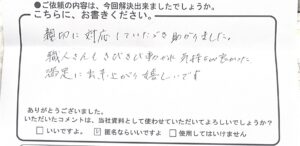 ●ご依頼の内容は、今回解決出来ましたでしょうか。
こちらに、お書きください。
親切に対応していただき助かりました。
職人さんもきびきび動かれ気持ちが良かった
満足に出来上がり嬉しいです
ありがとうございました。
いただいたコメントは、当社資料として使わせていただいてよろしいでしょうか？
□いいですよ。 ☑匿名ならいいですよ □使用してはいけません